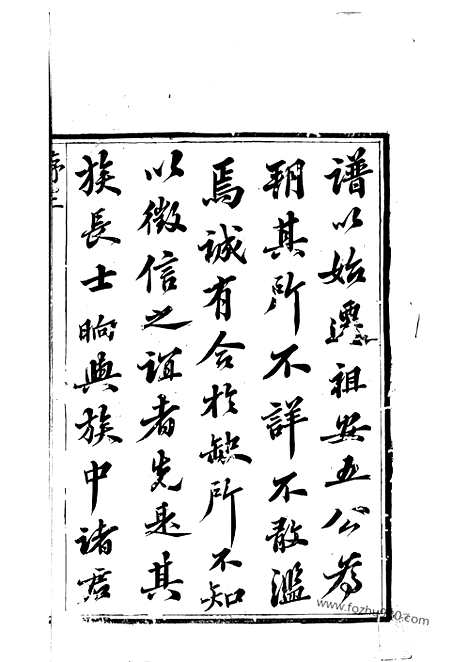 譜以始遷祖安五公為
朝其所不詳不敢濫
焉誠有合於缺所不知
以徵信之誼者先是其
族長士晌與族中諸君
序三
www.fozhu920.com